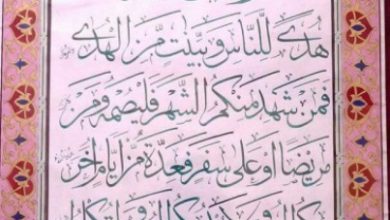 هُدًى لِلنَّاسِ وَبَيِّنَٰتٍ مِنَ الْهُدَى
فَمَنْ شَهِدَ مِنْكُمُ الشَّهْرَ فَلْيَصُمْهُ وَمَنْ
مَرِيضًا اَوْ عَلَى سَفَرٍ فَعِدَّةٌ مِنْ اَيَّامٍ اُخَرَ